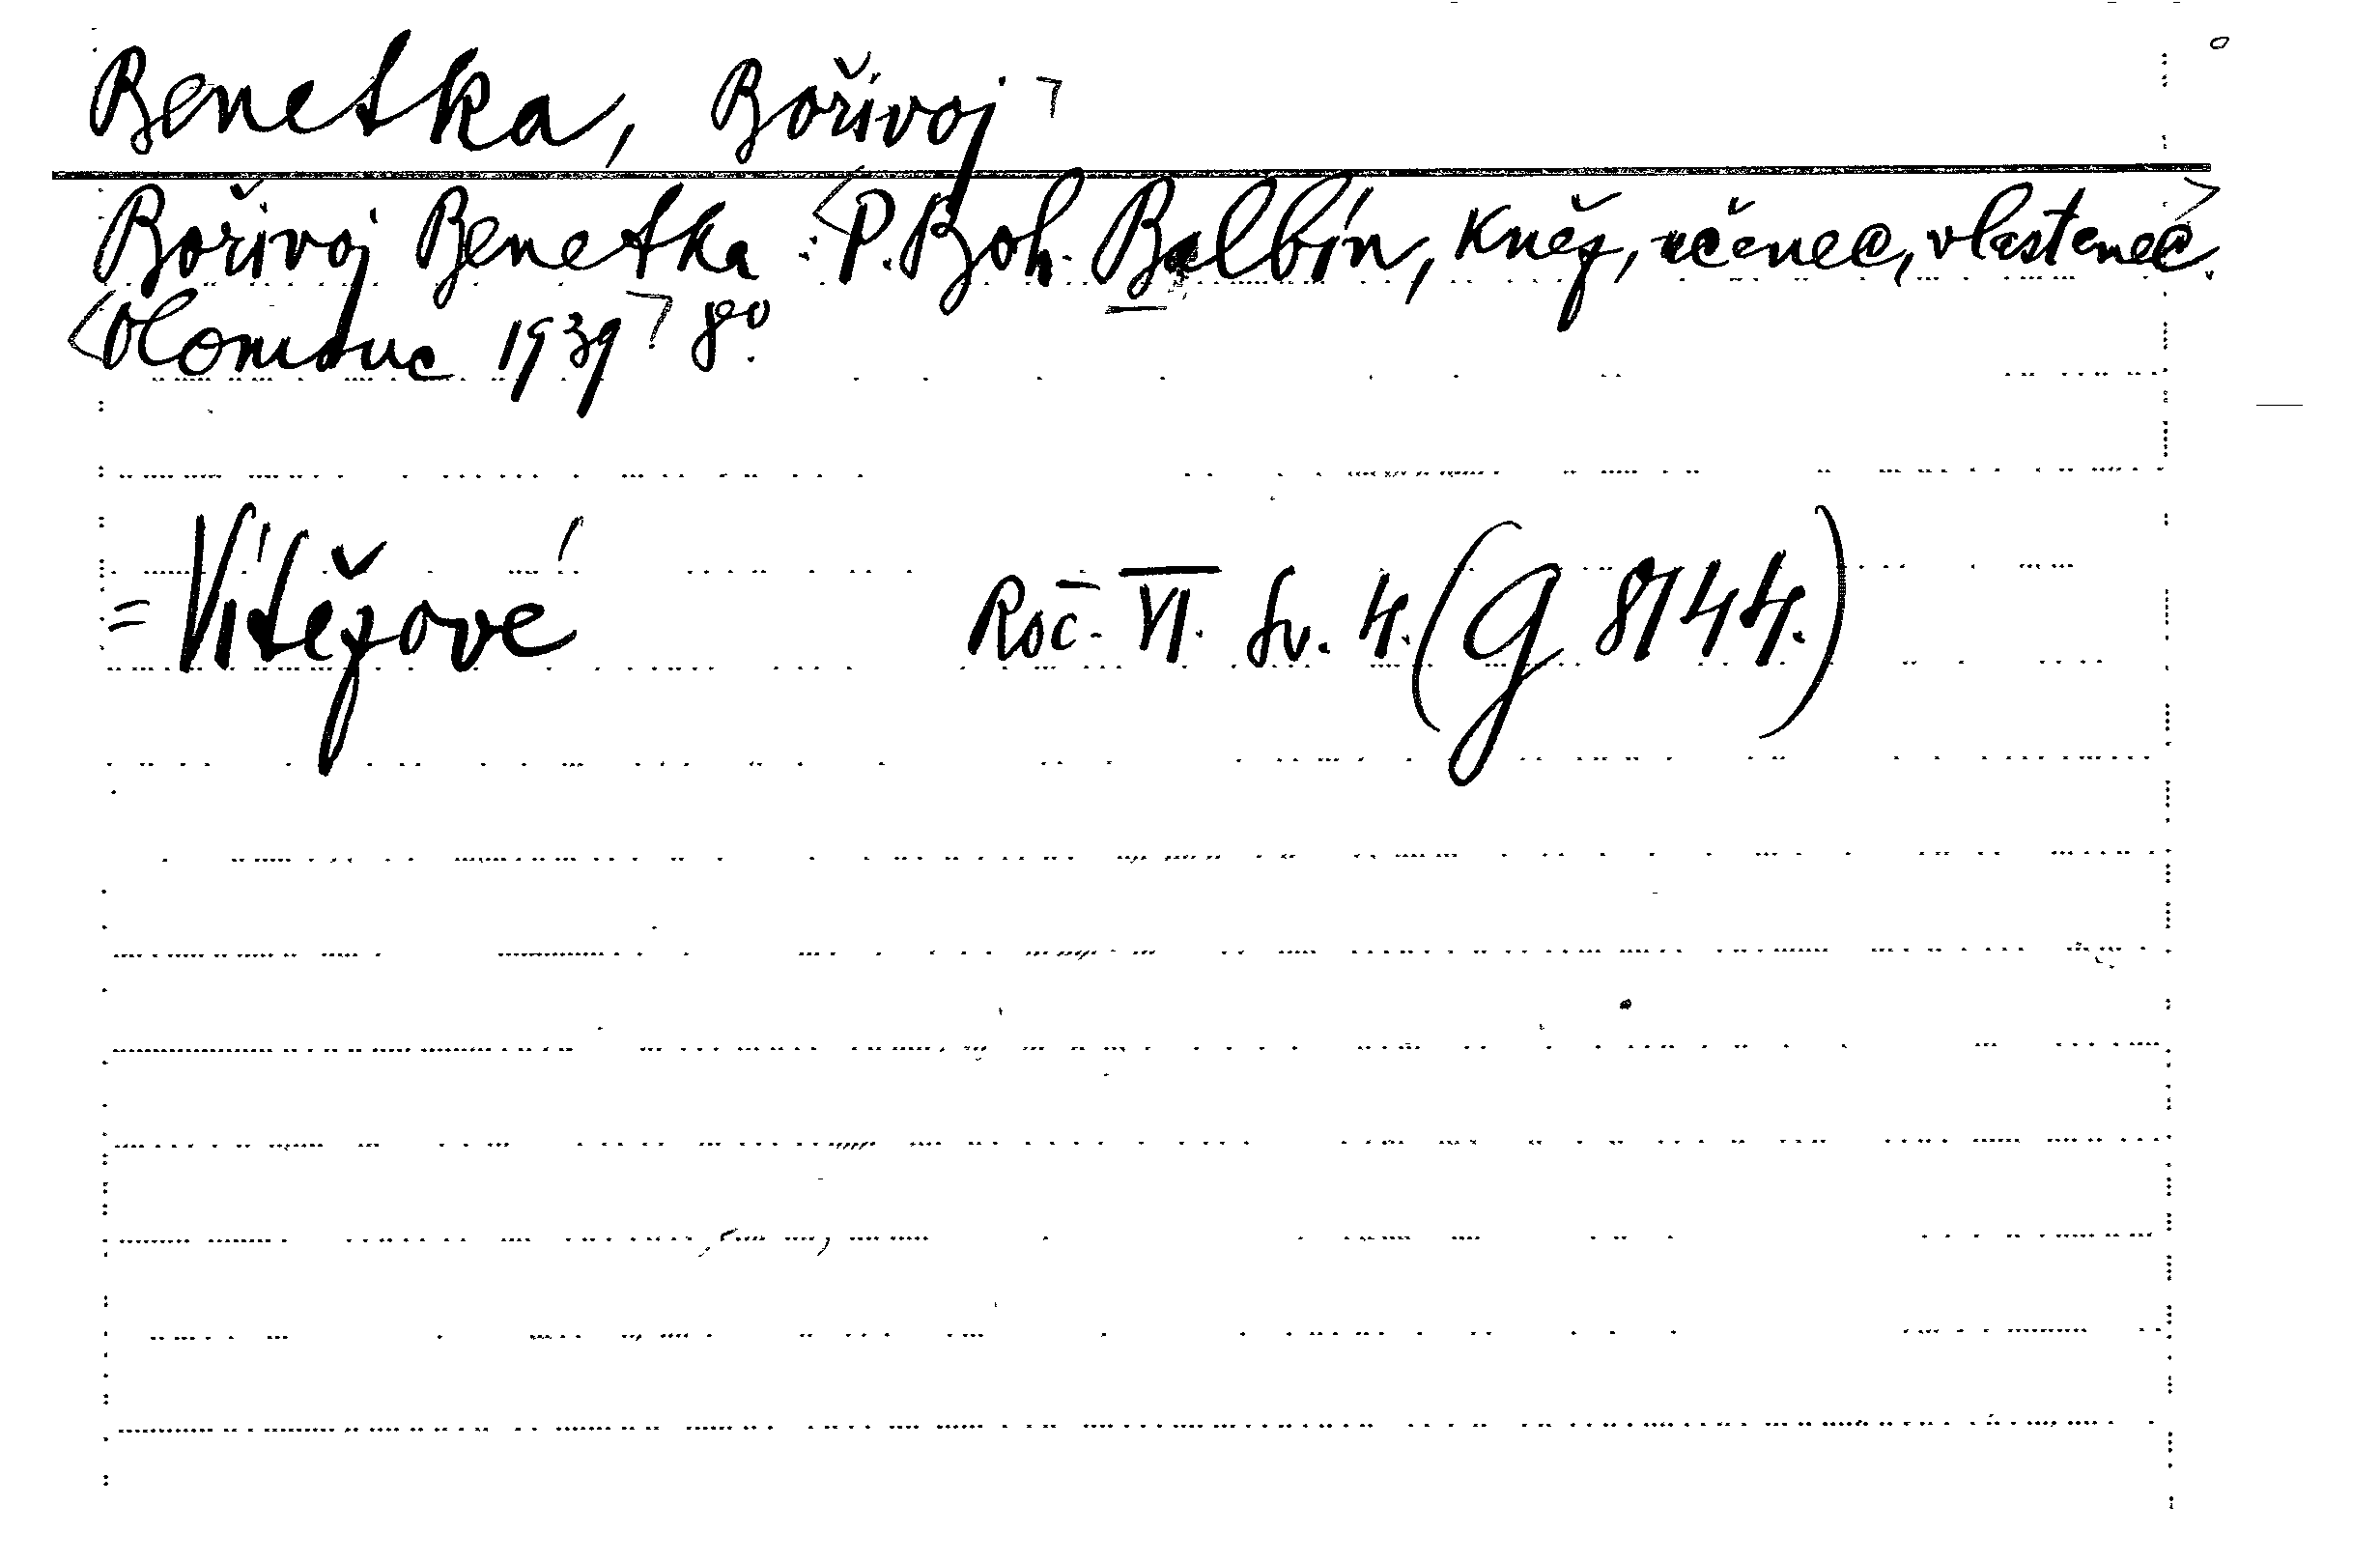 Benetka, Bořivoj
Bořivoj Benetka: P. Boh. Balbín, kněz, učenec, vlastenec.
Olomouc 1939 8°.
= Vítězové Roč. VI. Sv. 4. (G 8144.)